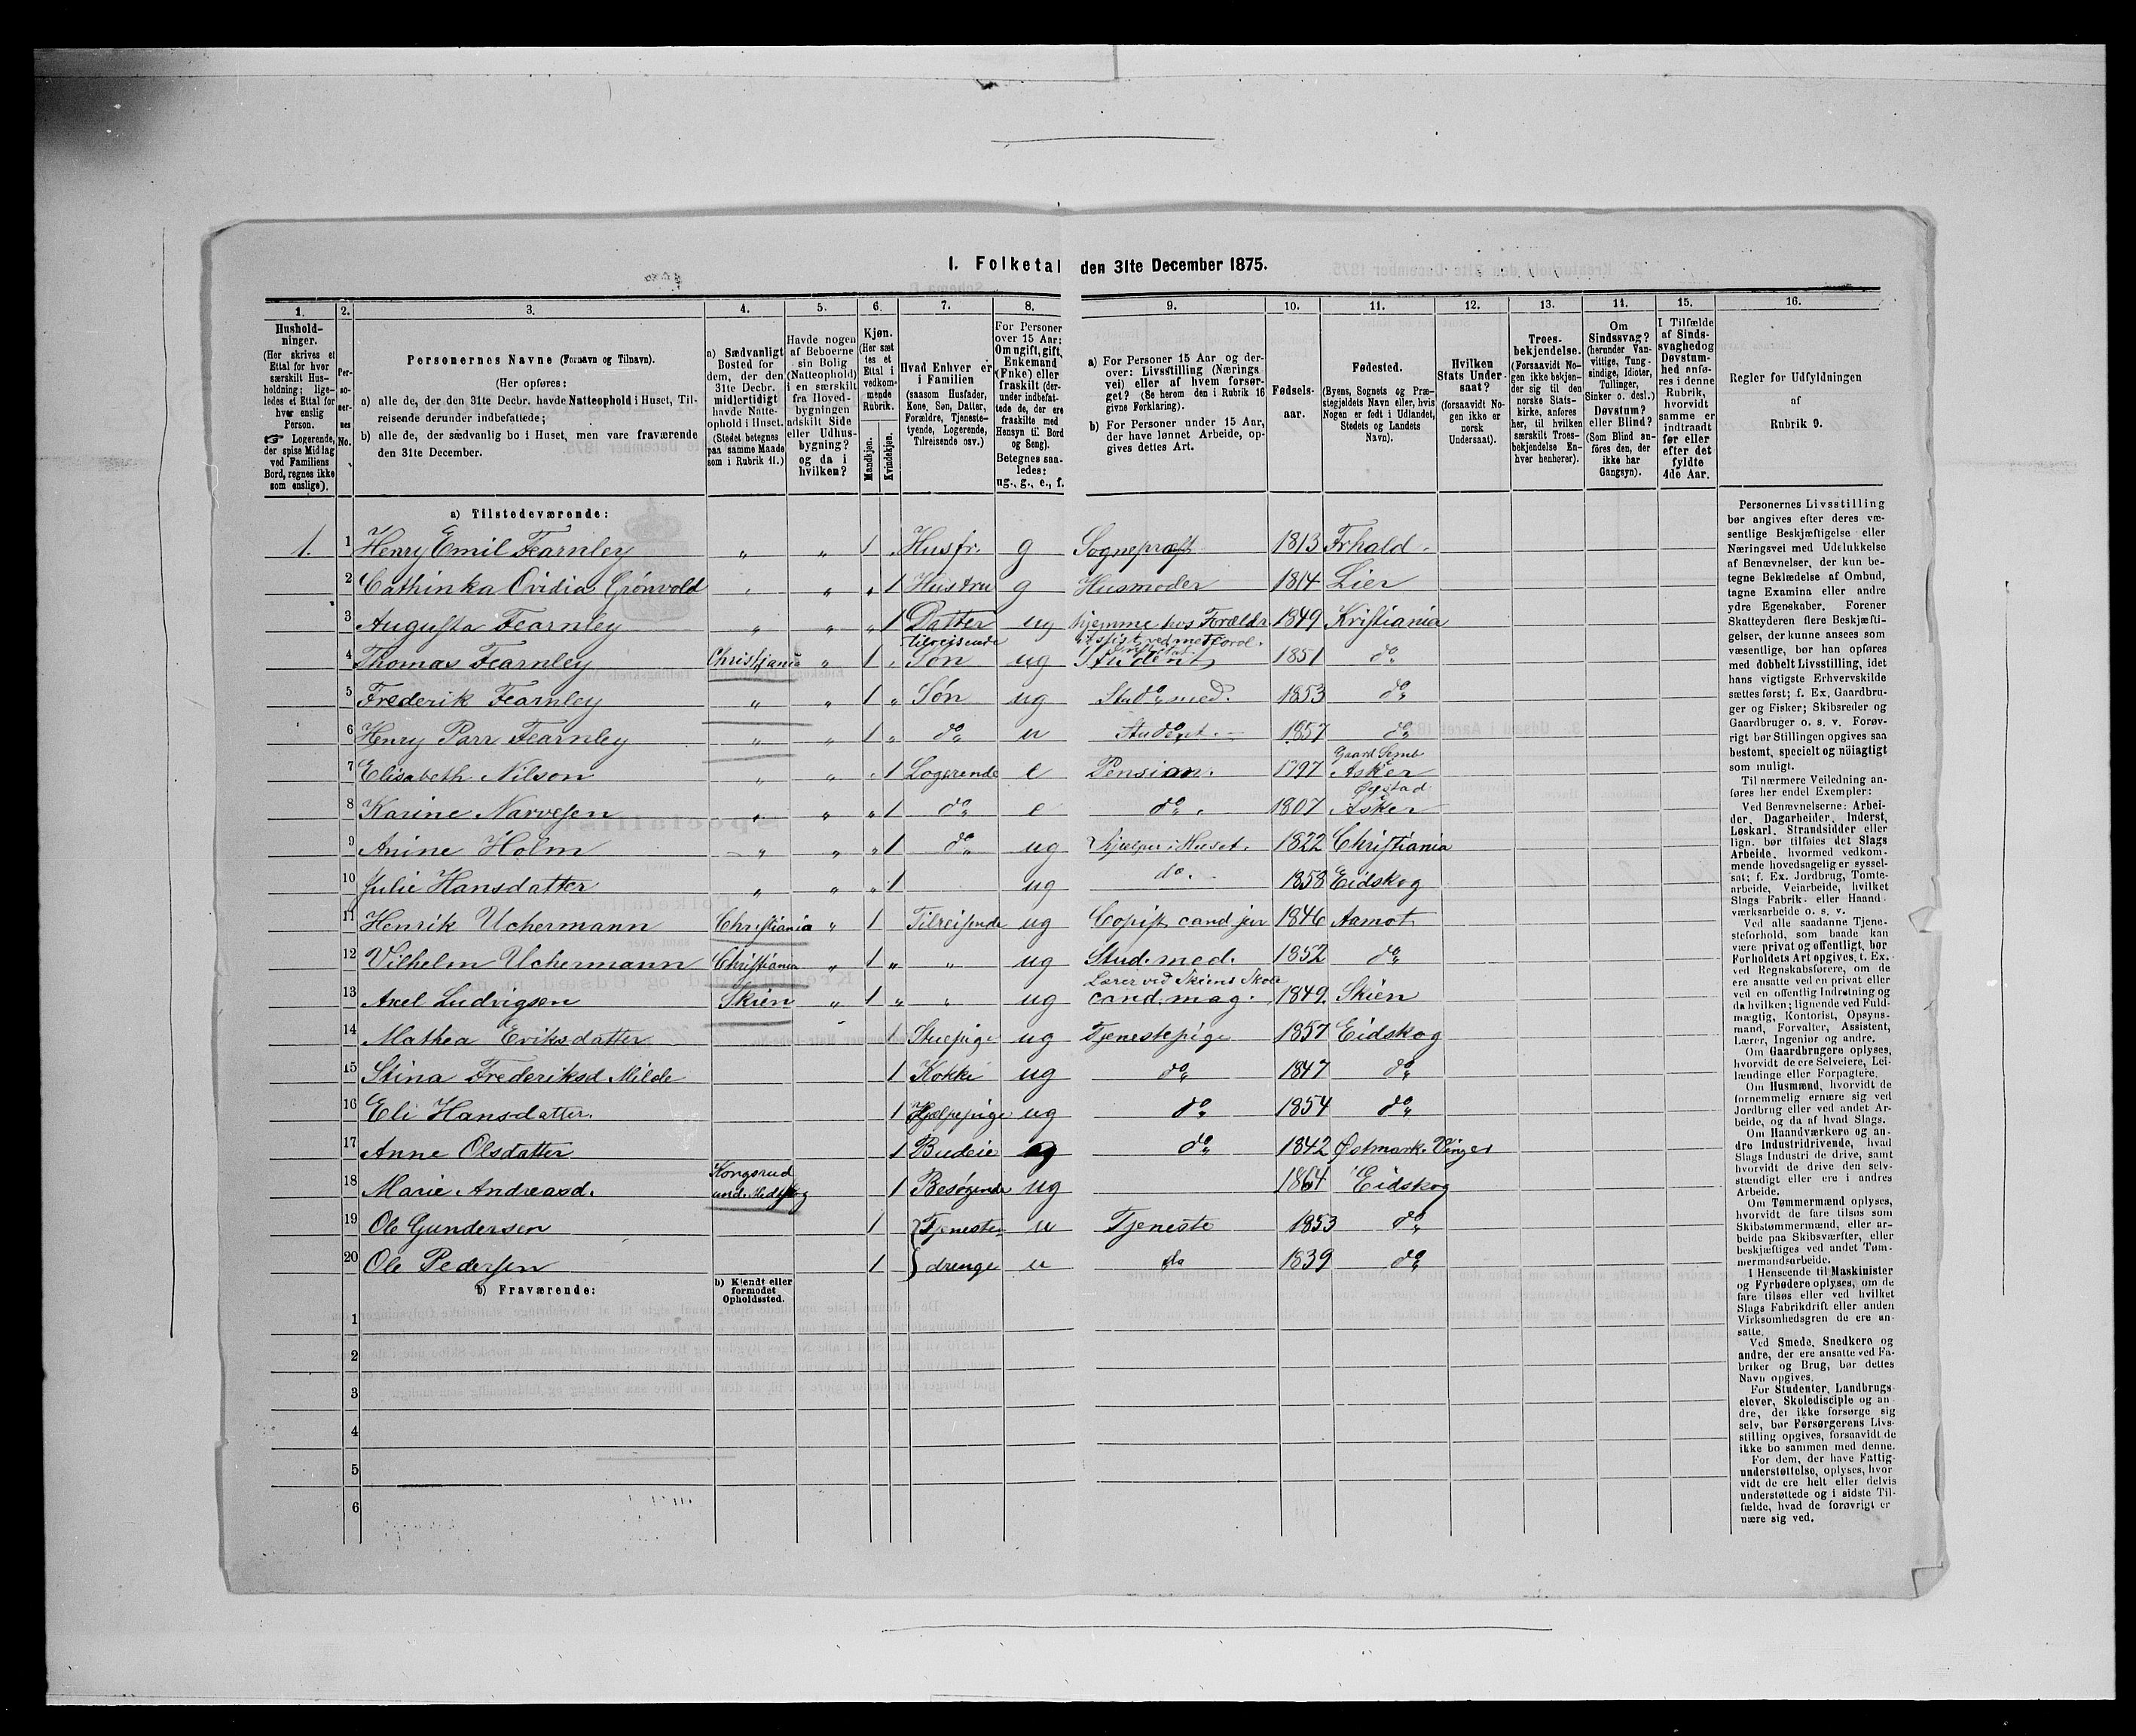 I. Folketal den 31te December 1875.
1. 2. 3. 4. 5. 6. 7. 8. 9. 10. 11. 12. 13. 14. 15. 16.
Hushold-
ninger.
(Her skrives et
Ettal for hver
særskilt Hus-
holdning; lige-
ledes et Ettal for
hver enslig
Person.
☞ Logerende,
der spise Middag
ved Familiens
Bord, regnes ikke
som enslige).
Per-
so-
ner-
nes
No.
Personernes Navne (Fornavn og Tilnavn).
(Her opføres:
a) alle de, der den 31te Decbr. havde Natteophold i Huset, Til-
reisende derunder indbefattede;
b) alle de, der sædvanlig bo i Huset, men vare fraværende
den 31te December.
a) Sædvanligt
Bosted for
dem, der den
31te Decbr.
midlertidigt
havde Natte-
ophold i Huset.
(Stedet betegnes
paa samme Maade
som i Rubrik 11.)
Havde nogen
af Beboerne
sin Bolig
(Natteophold)
i en særskilt
fra Hoved-
bygningen
adskilt Side
eller Udhus-
bygning?
og da i
hvilken?
Kjøn.
(Her sæt
tes et
Ettal i
vedkom-
mende
Rubrik.
Mandkjøn.
Kvindekjøn.
Hvad Enhver er
i Familien
(saasom Husfader,
Kone, Søn, Datter,
Forældre, Tjeneste-
tyende, Logerende,
Tilreisende osv.)
For Personer
over 15 Aar:
Om ugift, gift,
Enkemand
(Enke) eller
fraskilt (der-
under indbefat-
tede de, der ere
fraskilte med
Hensyn til Bord
og Seng).
Betegnes saa-
ledes:
ug., g., e., f.
a) For Personer 15 Aar og der-
over: Livsstilling (Nærings
vei) eller af hvem forsør-
get? (Se herom den i Rubrik 16
givne Forklaring).
b) For Personer under 15 Aar,
der have lønnet Arbeide, op-
gives dettes Art.
Fødsels-
aar.
Fødested.
(Byens, Sognets og Præ-
stegjeldets Navn eller, hvis
Nogen er født i Udlandet,
Stedets og Landets
Navn).
Hvilken
Stats Under-
saat?
(forsaavidt No-
gen ikke er
norsk
Undersaat).
Troes-
bekjendelse.
(Forsaavidt No-
gen ikke bekjen-
der sig til den
norske Stats-
kirke, anføres
her, til hvilken
særskilt Troes-
bekjendelse En-
hver henhører).
Om
Sindssvag?
(herunder Van-
vittige, Tung-
sindige, Idioter,
Tullinger,
Sinker o. desl.)
Døvstum?
eller Blind?
(Som Blind an-
føres den, der
ikke har
Gangsyn).
I Tilfælde
af Sinds-
svaghed og
Døvstum-
hed anfø-
res i denne
Rubrik,
hvorvidt
samme er
indtraadt
før eller
efter det
fyldte
4de Aar.
Regler for Udfyldningen
af
Rubrik 9.
a) Tilstedeværende:
1. 1 Henry Emil Fearnley " " 1 " Husfr. g Sognepræst 1813 Frhald.
2 Cathinka Ovidia Grönvold " " " 1 Hustru g Husmoder 1814 Lier
3 Augusta Fearnley " " " 1 Datter ug hjemme hos Forældr 1849 Kristiania
tilreisende
4 Thomas Fearnley Christiania " 1 " Søn ug Student 1851 do
5 Frederik Fearnley " " 1 " Søn ug Stud. med. 1853 do
6 Henry Parr Fearnley " " 1 " do u Student 1857 do
Gaard Semb
7 Elisabeth Nilson " " " 1 Logerende e Pension. 1797 Asker
8 Karine Narvesen " " " 1 do e do. 1807 Asker
9 Anine Holm " " " 1 do ug hjælper i Huset. 1822 Christiania
10 Julie Hansdatter " " " 1 ug do. 1858 Eidskog
11 Henrik Uchermann Christiania " 1 Tilreisende ug Copist cand jur 1846 Aamot
12 Vilhelm Uchermann Christiania " 1 " " ug Stud. med. 1852 do
Lærer ved Skiens Skole
13 Axel Ludvigsen Skien " 1 " " ug cand. mag. 1849. Skien
14 Mathea Eriksdatter 1 Stuepige ug Tjenestepige 1857 Eidskog
15 Stina Frederiksd Milde 1 Kokke ug do 1847 do
16 Eli Hansdatter. 1 Hjælpepige ug do 1854 do
17 Anne Olsdatter 1 Budeie g do 1842 Østmark. Vinger
Kongsrud
18 Marie Andreasd. und. Medskog 1 Besøgende ug 1864 Eidskog
19 Ole Gundersen 1 Tjeneste u Tjeneste 1853 do
20 Ole Pedersen 1 drenge u do 1839 do
b) Fraværende:
b) Kjendt eller
formodet
Opholdssted.
1
2
3
4
5
6
Personernes Livsstilling
bør angives efter deres væ-
sentlige Beskjæftigelse eller
Næringsvei med Udelukkelse
af Benævnelser, der kun be-
tegne Beklædelse af Ombud,
tagne Examina eller andre
ydre Egenskaber. Forener
Skatteyderen flere Beskjæfti-
gelser, der kunne ansees som
væsentlige, bør han opføres
med dobbelt Livsstilling, idet
hans vigtigste Erhvervskilde
sættes først; f. Ex. Gaardbru-
ger og Fisker; Skibsreder og
Gaardbruger o. s. v. Forøv-
rigt bør Stillingen opgives saa
bestemt, specielt og nöiagtigt
som muligt.
Til nærmere Veiledning an-
føres her endel Exempler:
Ved Benævnelserne: Arbei-
der, Dagarbeider, Inderst,
Løskarl, Strandsidder eller
lign. bør tilføies det Slags
Arbeide, hvormed vedkom-
mende hovedsagelig er syssel-
sat; f. Ex. Jordbrug, Tomte-
arbeide, Veiarbeide, hvilket
Slags Fabrik- eller Haand
værksarbeide o. s. v.
Ved alle saadanne Tjene-
steforhold, som baade kan
være privat og offentligt, bør
Forholdets Art opgives, t. Ex.
ved Regnskabsførere, om de
ere ansatte ved en privat eller
ved en offentlig Indretning og
da hvilken; lignende ved Fuld-
mægtig, Kontorist, Opsyns-
mand, Forvalter, Assistent,
Lærer, Ingeniør og andre.
Om Gaardbrugere oplyses,
hvorvidt de ere Selveiere, Lei-
lændinge eller Forpagtere.
Om Husmænd, hvorvidt de
fornemmelig ernære sig ved
Jordbrug eller ved andet Ar-
beide, og da af hvad Slags.
Om Haandværkere og an-
dre Industridrivende, hvad
Slags Industri de drive, samt
hvorvidt de drive den selv-
stændigt eller ere i andres
Arbeide.
Om Tømmermænd oplyses,
hvorvidt de fare tilsøs som
Skibstømmermænd, eller ar-
beide paa Skibsværfter, eller
beskjæftiges ved andet Tøm-
mermandsarbeide.
I Henseende til Maskinister
og Fyrbødere oplyses, om de
fare tilsøs eller ved hvilket
Slags Fabrikdrift eller anden
Virksomhedsgren de ere an-
satte.
Ved Smede, Snedkere og
andre, der ere ansatte ved Fa-
briker og Brug, bør dettes
Navn opgives.
For Studenter, Landbrugs-
elever, Skoledisciple og an-
dre, der ikke forsørge sig
selv, bør Forsørgerens Livs-
stilling opgives, forsaavidt de
ikke bo sammen med denne.
For dem, der have Fattig-
understøttelse, oplyses, hvor
vidt de ere helt eller delvis
understøttede og i sidste Til-
fælde, hvad de forøvrigt er
nære sig ved.